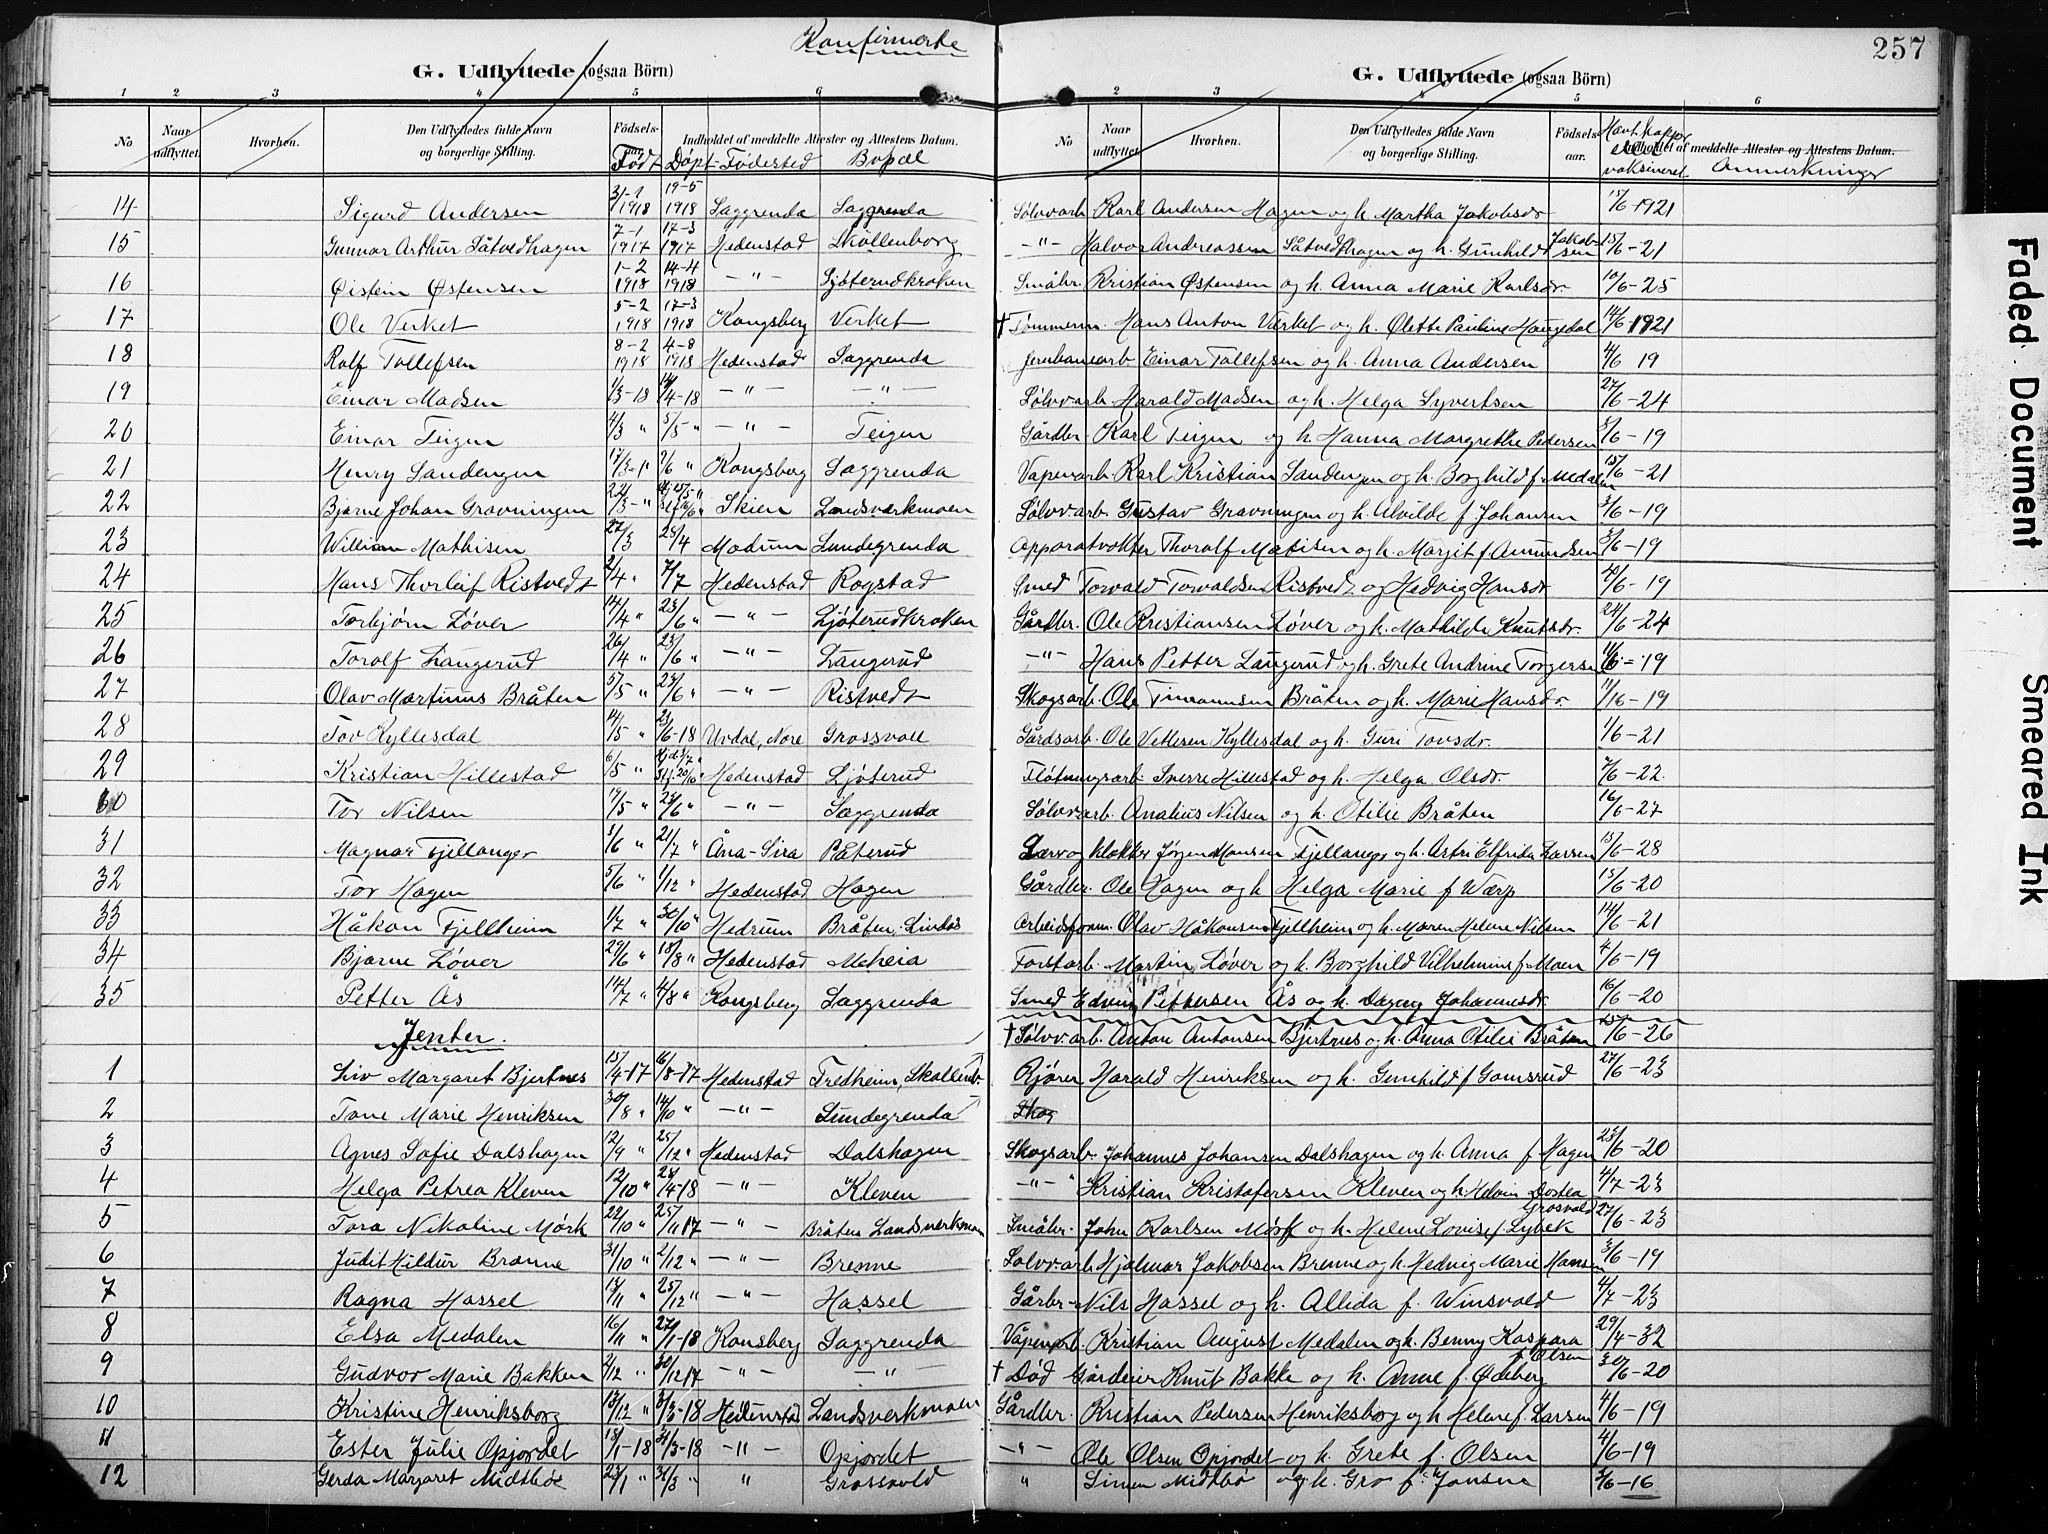 Konfirmerte
257
G. Udflyttede (ogsaa Börn)
G. Udflyttede (ogsaa Börn)
1 2 3 4 5 6
2 3 4 5 6
No
Naar udflyttet.
Hvorhen.
Den Udflyttedes fulde Navn og borgerlige Stilling.
Födsels-aar.
Indholdet af meddelte Attester og Attestens Datum.
Født Døpt Fødested Bopæl
No
Naar udflyttet.
Hvorhen.
Den Udflyttedes fulde Navn og borgerlige Stilling.
Födsels-aar.
Indholdet af meddelte Attester og Attestens Datum.
vaksineret Anmerkninger
14 Sigurd Andersen 3/1-1 1918 19-5 1918 Saggrenda Saggrenda
15 Gunnar Arthur Såtvedhagen 7-1 1917 17-3 1917 Hedenstad Skollenborg
16 Øistein Østensen 1-2 1918 14-4 1918 -"- Ljøterudkroken
17 Ole Verket 5-2 1918 17-3 1918 Kongsberg Verket
18 Rolf Tollefsen 8-2 1918 4-8 1918 Hedenstad Saggrenda
19 Einar Madsen 1/3-18 14/4-18 -"- -"-
20 Einar Teigen 4/3 " 5/5 " -"- Teigen
21 Henry Sandengen 17/3-" 9/6 " Kongsberg Saggrenda
22 Bjarne Johan Gravningen 22/3-" Skien Landsverkmoen
23 William Mathisen 27/3 25/4 Modum Lundegrenda
24 Hans Thorleif Ristvedt 2/4 " 7/7 Hedenstad Rogstad
25 Torbjørn Løver 14/4 " 23/6 " -"- Ljøterudkroken
26 Torolf Langerud 26/4 " 23/6 " -"- Langerud
27 Olav Martinius Bråten 5/5 " 23/6 " -"- Ristvedt
28 Tov Kyllesdal 14/5 " 23/6-18 Uvdal, Nore Grosvoll
29 Kristian Hillestad 6/5 " Hedenstad Ljøterud
30 Tor Nilsen 17/5 " 23/6 " -"- Saggrenda
31 Magnar Fjellanger 3/6 " 21/7 " Åna-Sira Påterud
32 Tor Hagen 5/6 " 1/12 " Hedenstad Hagen
33 Håkon Fjellheim 1/7 " 30/10 " Hedrum Bråten, Lindås
34 Bjarne Løver 22/6 " 18/8 " Hedenstad Meheia
35 Petter Ås 14/7 " 4/8 " Kongsberg Saggrenda
Jenter.
1 Liv Margaret Bjertnes 15/4-17 16/8-17 Hedenstad Fredheim, Skollenb.
2 Tone Marie Henriksen 30/8 " 14/10 " -"- Lundegrenda
3 Agnes Sofie Dalshagen 12/9 " 25/12 " Hedenstad Dalshagen
4 Helga Petrea Kleven 12/10 " 28/4-18 -"- Kleven
5 Tora Nikoline Mørk 22/10 " 25/11 17 -"- Bråten Landsverkmoen
6 Judit Hildur Brenne 31/10 " 2/12 " -"- Brenne
7 Ragna Hassel 13/11 " 25/12 " -"- Hassel
8 Elsa Medalen 16/11 " 27/1-18 Konsberg Saggrenda
9 Gudvor Marie Bakken 2/12 " 30/12 17 -"- -"-
10 Kristine Henriksborg 13/12 " 31/3-18 Hedenstad Landsverkmoen
11 Ester Julie Opjordet 18/1-18 31/3-18 -"- Opjordet
12 Gerda Margaret Midtbø 23/1 " 31/3 " " Grosvold
Sølvvarb. Karl Andersen Hagen og h. Martha Jakobsdr 15/6-1921
-"- Halvor Andreassen Såtvedthagen og h. Gunhild Jakobsen 15/6-21
Småbr. Kristian Østensen og h. Anna Marie Karlsdr 10/6-25
† Tømmerm. Hans Anton Værket og h. Olette Pauline Haugedal 14/6 1921
Jernbanearb. Einar Tollefsen og h. Anna Andersen 4/6 19
Sølvvarb. Harald Madsen og h. Helga Syvertsen 27/6-24
Gårdbr. Karl Teigen og h. Hanna Margrethe Pedersen 3/6-19
Vapenarb. Karl Kristian Sandengen og h. Borghild f. Medalen 15/6-21
Sølvvarb. Gustav Gravningen og h. Alvilde f. Johansen 3/6-19
Apparatvokter Thoralf Matisen og h. Margit f. Amundsen 3/6-19
Smed Torvald Torvaldsen Ristvedt og Hedvig Hansdr 4/6-19
Gårdbr. Ole Kristiansen Løver og h. Mathilde Knutsdr. 24/6-24
-"- Hans Petter Langerud og h. Grete Andrine Torgersen 11/6-19
Skogsarb. Ole Timannsen Bråten og h. Marie Hansdr. 11/6-19
Gårdsarb. Ole Vetlesen Kyllesdal og h. Guri Tovsdr. 1/6-21
Fløtningsarb. Sverre Hillestad og h. Helga Olsdr. 7/6-22
Sølvvarb. Analius Nilsen og h. Otilie Bråten 16/6-27
Lærer og klokker Jørgen Monsen Fjellanger og h. Astri Elfrida Larsen 15/6-28
Gårdbr. Ole Hagen og h. Helga Marie f. Wærp 15/6-20
Arbeidsform. Olav Håkonsen Fjellheim og h. Maren Helene Nilsen 14/6-21
Forstarb. Martin Løver og h. Borghild Vilhelmine f. Moen 4/6-19
Smed Edvin Pettersen Ås og h. Dagny Johannesdr. 16/6-20
† Sølvv.arb. Anton Antonsen Bjertnes og h. Anna Otilie Bråten 15/6-26
Kjører Harald Henriksen og h. Gunhild f. Gamsrud 27/6-23
Skog
Skogsarb. Johannes Johansen Dalshagen og h. Anna f. Hagen 25/6-20
-"- Kristian Kristofersen Kleven og h. Helvin Dortea Grosvold 4/7-23
Småbr. John Karlsen Mørk og h. Helene Lovise f. Lybek 27/6-23
Sølvv.arb Hjalmar Jakobsen Brenne og h. Hedvig Marie Hansen 3/6-19
Gårbr. Nils Hassel og h. Allida f. Winsvold 4/7-23
Våpenarb Kristian August Medalen og h. Benny Kaspara f. Olsen 29/4-32
† Død Gårdeier Knut Bakke og h. Anne f. Ødeberg 30/6-20
Gårdbr. Kristian Pedersen Henriksborg og h Helene f. Larsen 4/6-19
-"- Ole Olsen Opjordet og h. Grete f. Olsen 4/6-19
" Simen Midtbø og h. Gro f. Jonsne 5/6-16
Faded Document
Smeared Ink